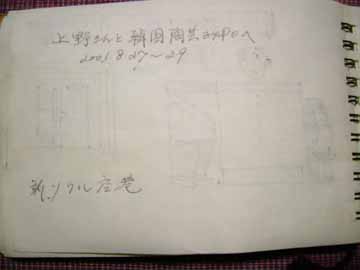 上野さんと韓国陶芸EXPOへ
2001.8.27〜29
新ソウル空港